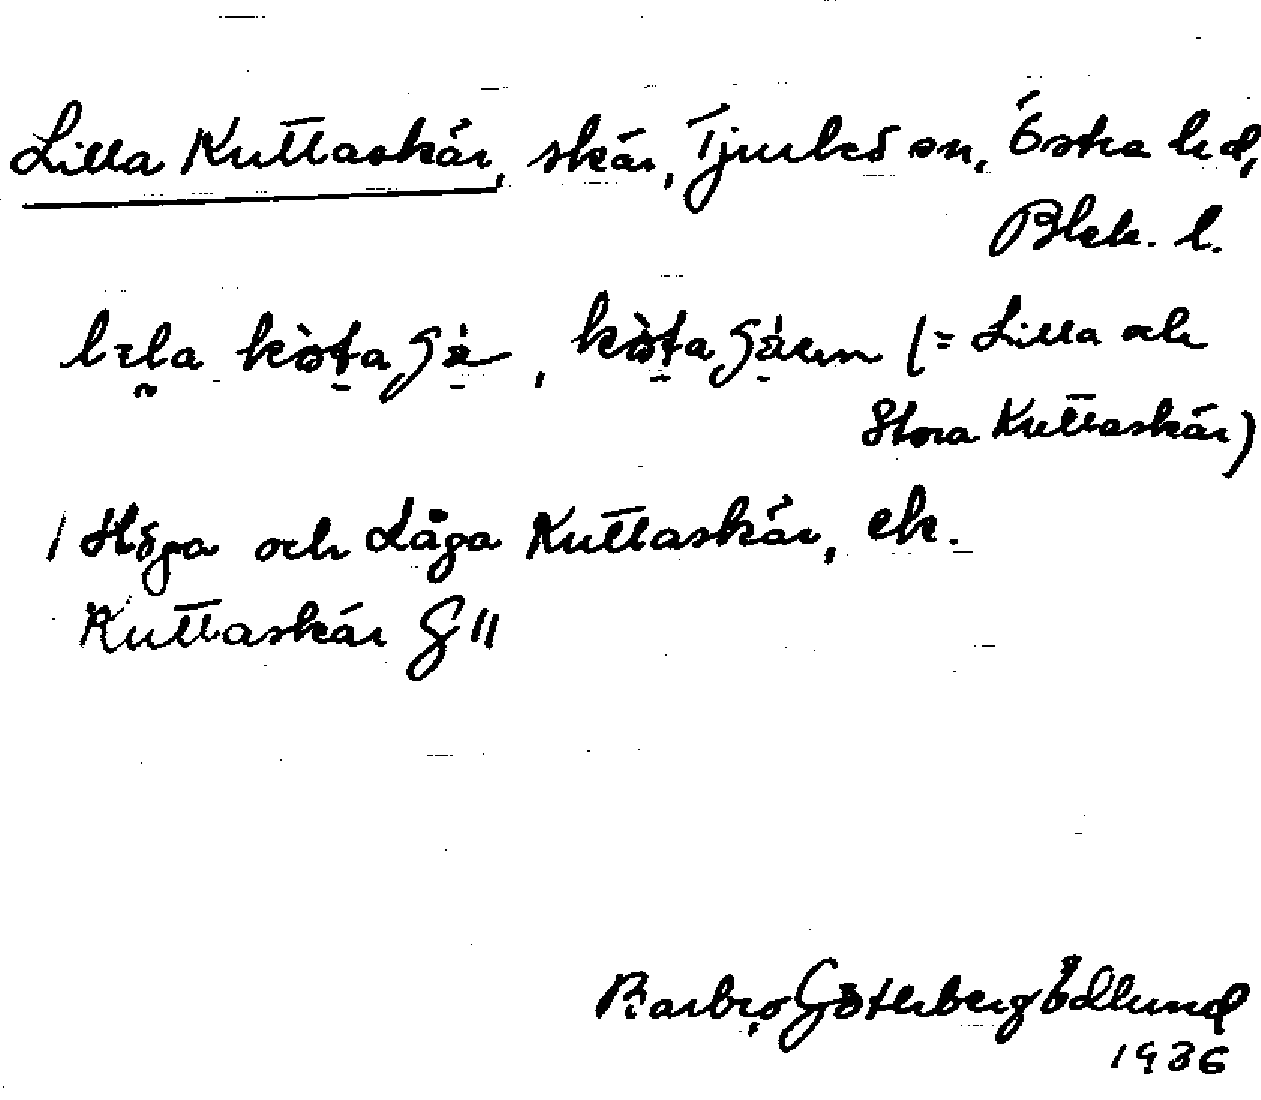 Lilla Kuttaskär, skär, Tjurkö sn, Östra hd,
Blek. l.
(= Lilla och
Stora Kuttaskär)
/ Höga och Låga Kuttaskär, ek.
Kuttaskär G 11
Barbro Göterberg Edlund
1936